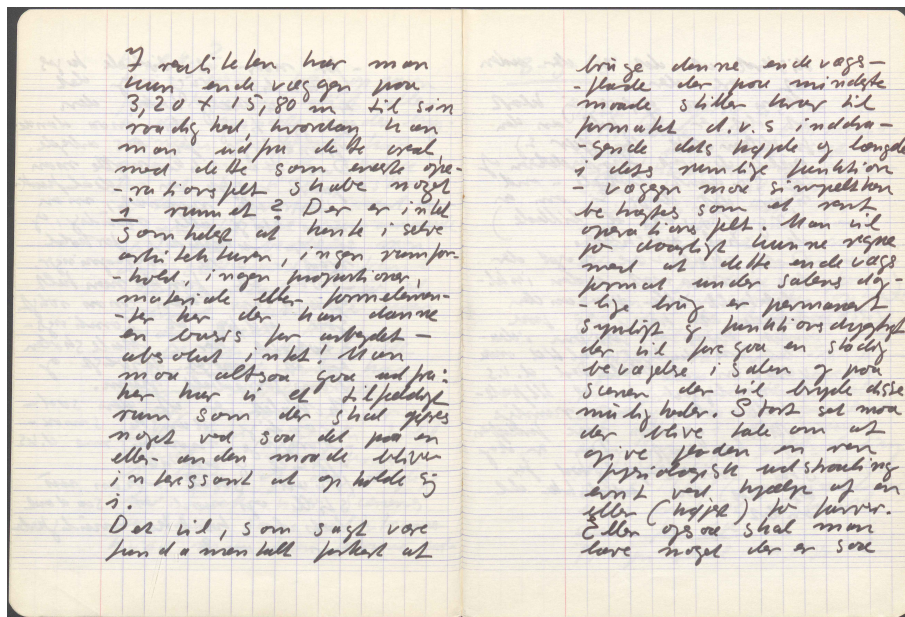 I realiteten har man
kun ende væggen paa
3,20 x 15,80 m til sin
raadighed, hvordan kan
man udfra dette areal
med dette som eneste ope-
-rationsfelt skabe noget
i rummet? Der er intet
som helst at hente i selve
arkitekturen, ingen rumfor-
-hold, ingen proportioner,
materiale eller formelemen-
-ter her der kan danne
en basis for arbejdet -
absolut intet! Man
maa altsaa gaa ud fra:
her har vi et tilfældigt
rum som der skal gøres
noget ved saa det paa en
eller anden maade bliver
interessant at opholde sig
i.
Det vil, som sagt være
fundamentalt forkert at
bruge denne endevægs-
-flade der paa mindste
maade stiller krav til
formatet d.v.s inddra-
-gende dets højde og længde
i dets rumlige funktion
- væggen maa simpelthen
betragtes som et rent
operationsfelt. Man vil
jo daarligt kunne regne
med at dette endevægs
format under salens dag-
-lige brug er permanent
synligt og funktionsdygtigt
der vil foregaa en stadig
bevægelse i salen og paa
scenen der vil bryde disse
muligheder. Stort set maa
der blive tale om at
give fladen en ren
fysiologisk udstraaling
evnt ved hjælp af en
eller (højst) to farver.
Eller ogsaa skal man
lave noget der er saa